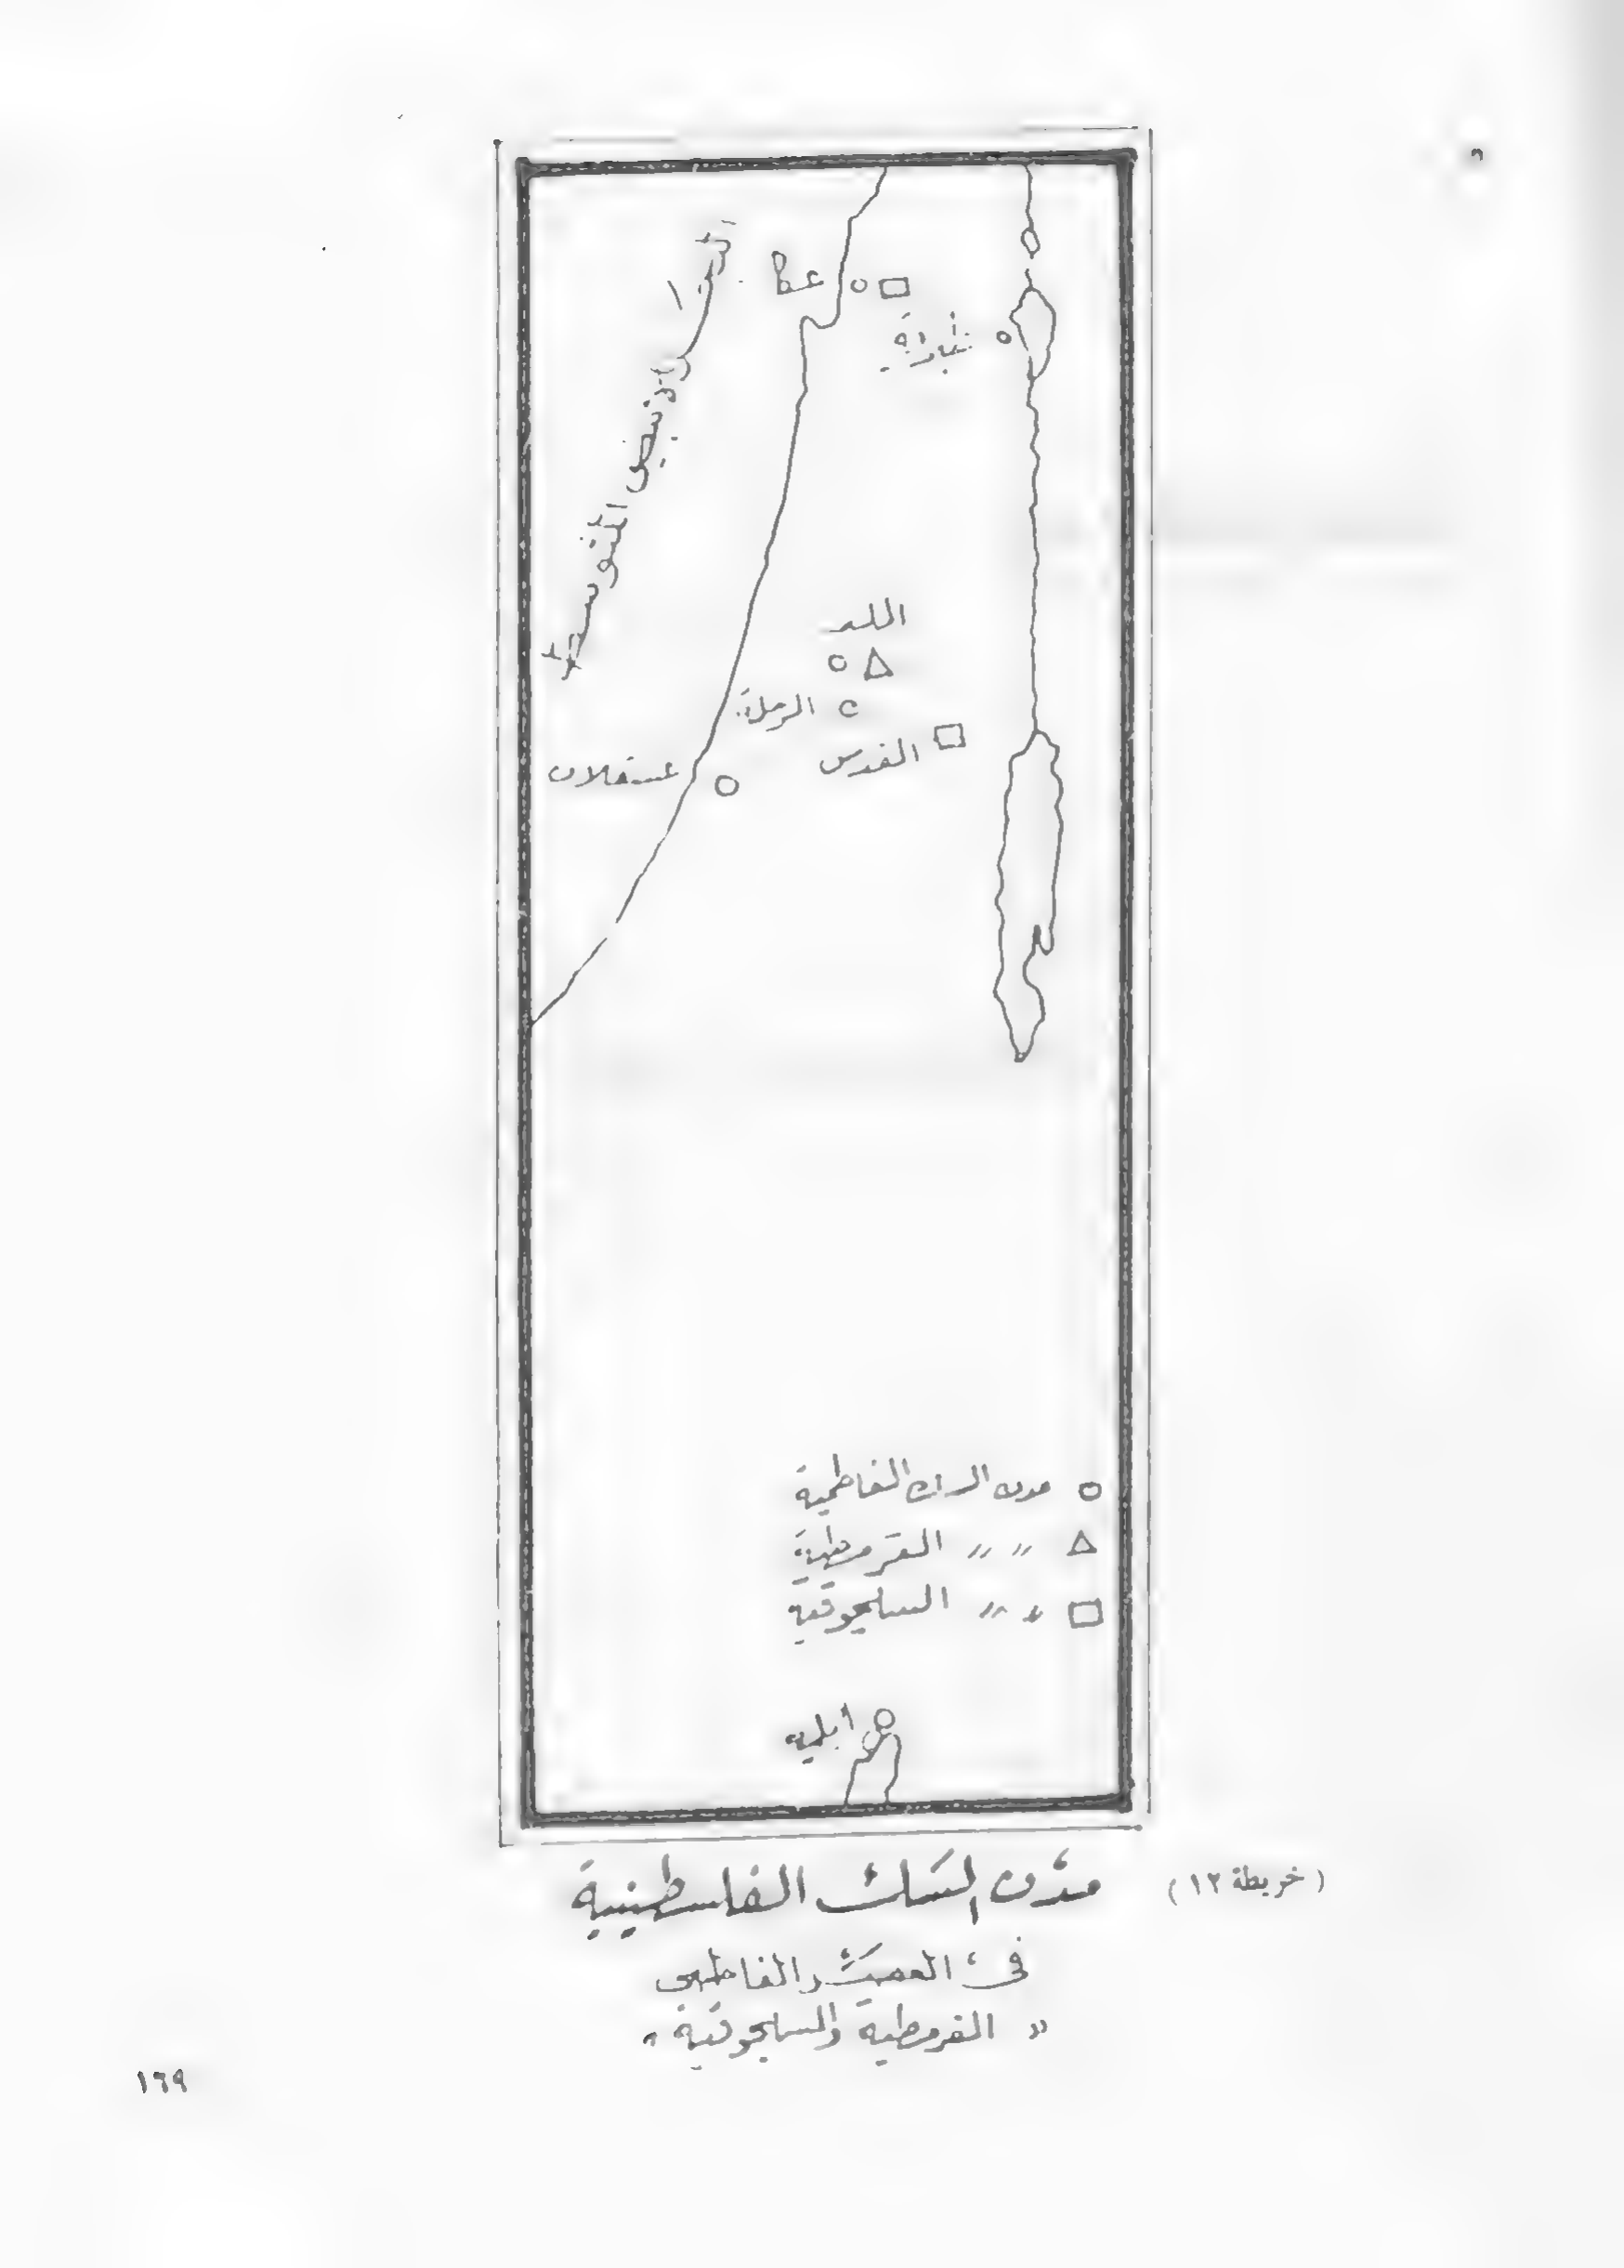 البحر الأبيض المتوسط
عكا
طبرية
اللد
الرملة
القدس
عسقلان
مدن السك الفاطمية
〃 〃 القرمطية
〃 〃 السلجوقية
ايلة
(خريطة ١٢)
مدن السك الفلسطينية
في العصر الفاطمي
" القرمطية والسلجوقية "
١٦٩